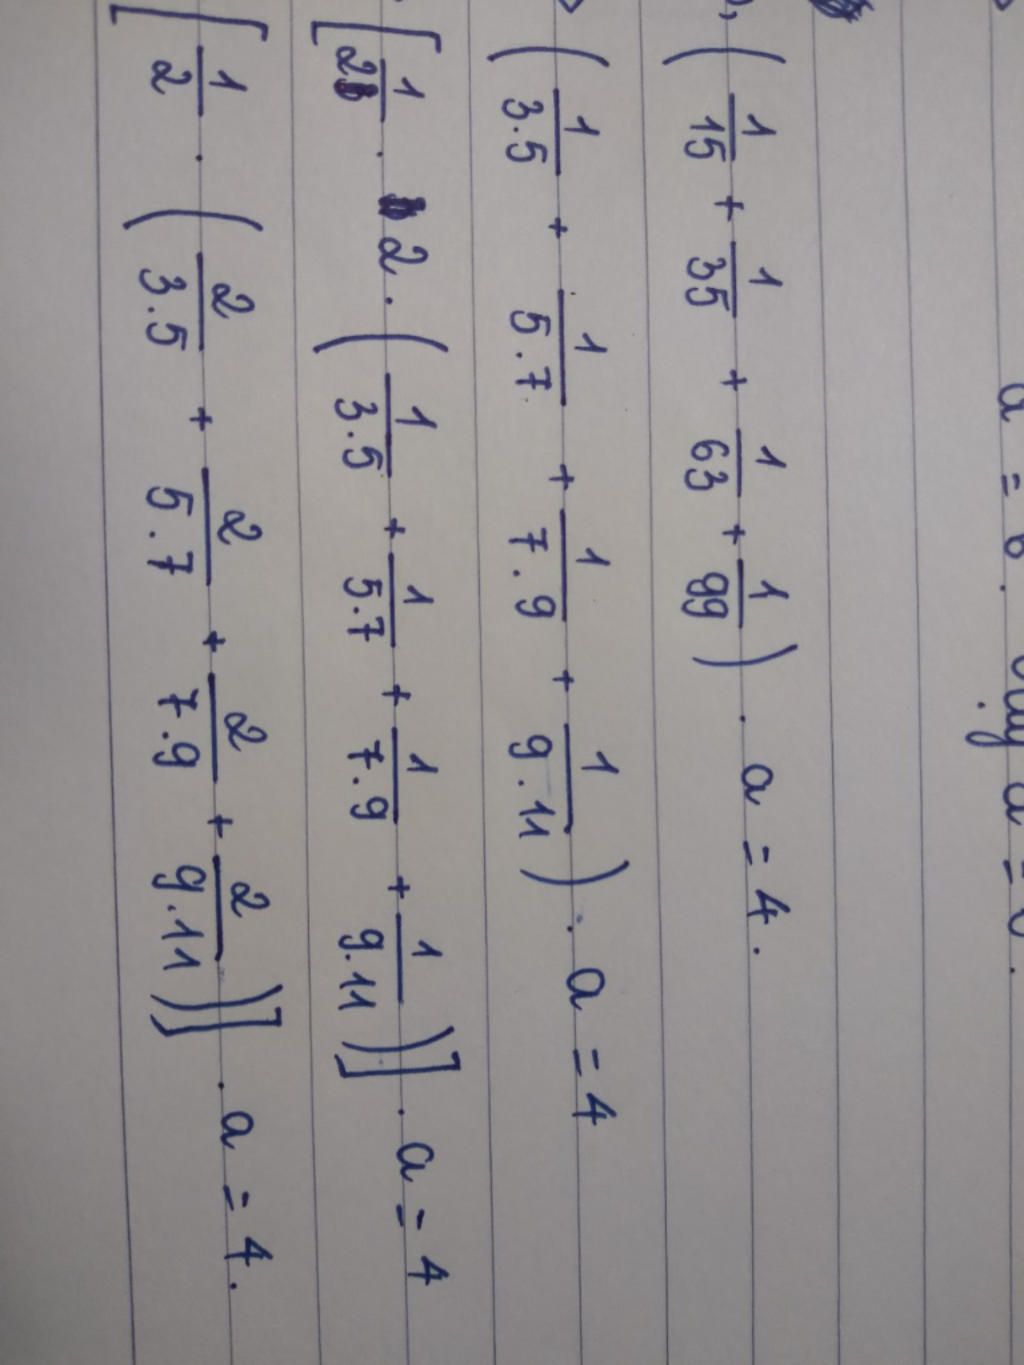 a = 6. Vậy a = 6.
), (1/15 + 1/35 + 1/63 + 1/99) . a = 4.
(1/3.5 + 1/5.7 + 1/7.9 + 1/9.11) . a = 4
[1/2 . 2 . (1/3.5 + 1/5.7 + 1/7.9 + 1/9.11)] . a = 4
[1/2 . (2/3.5 + 2/5.7 + 2/7.9 + 2/9.11)] . a = 4.